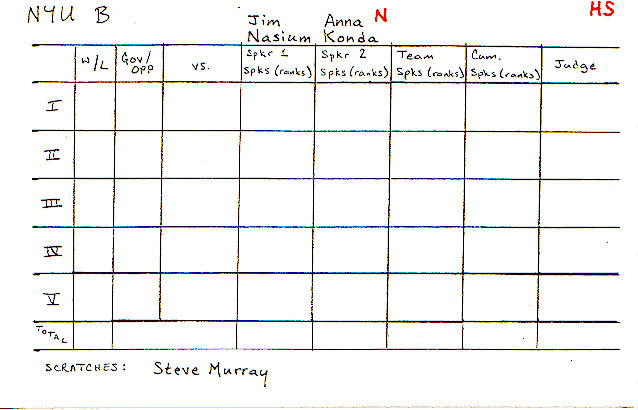 NYU B
Jim Nasium
Anna Konda
N
HS
W/L
Gov/OPP
vs.
Spkr 1 Spks (ranks)
Spkr 2 Spks (ranks)
Team Spks (ranks)
Cum. Spks (ranks)
Judge
I
II
III
IV
V
TOTAL
SCRATCHES: Steve Murray